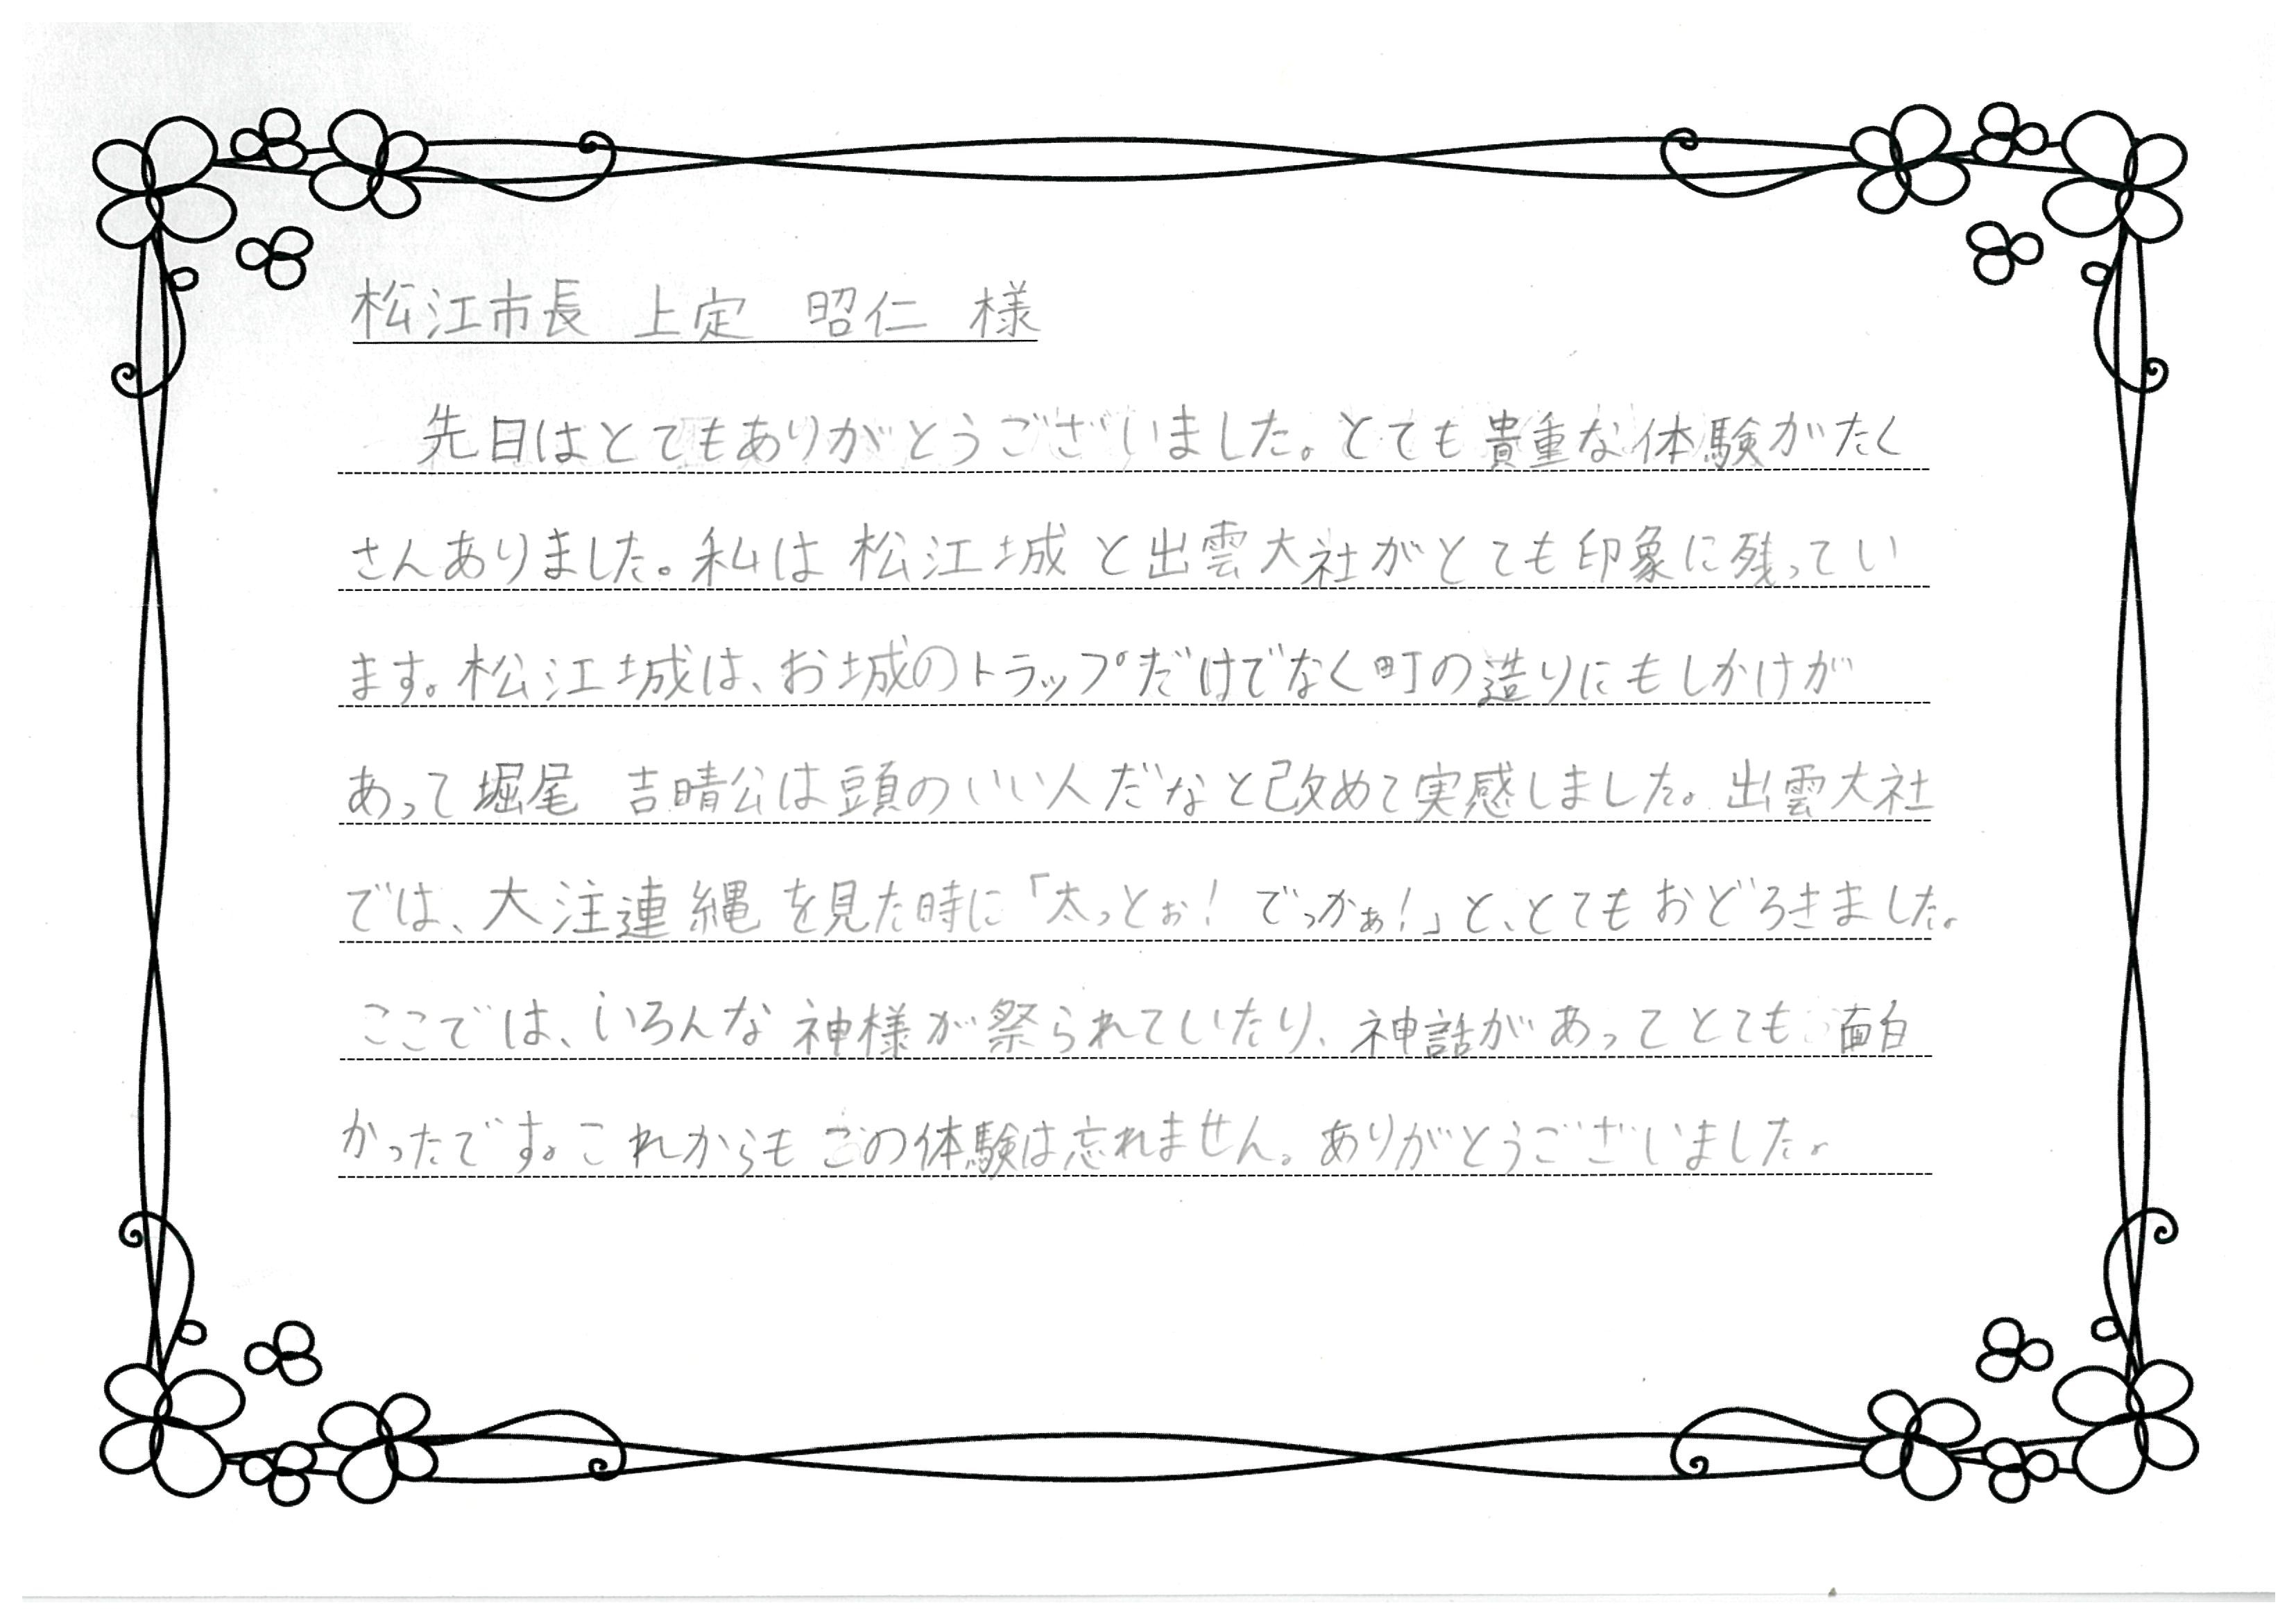 松江市長 上定 昭仁 様
先日はとてもありがとうございました。とても貴重な体験がたく
さんありました。私は松江城と出雲大社がとても印象に残ってい
ます。松江城は、お城のトラップだけでなく町の造りにもしかけが
あって堀尾 吉晴公は頭のいい人だなと改めて実感しました。出雲大社
では、大注連縄を見た時に「太っとぉ！でっかぁ！」と、とてもおどろきました。
ここでは、いろんな神様が祭られていたり、神話があってとても面白
かったです。これからもこの体験は忘れません。ありがとうございました。